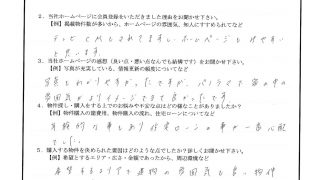 2. 当社ホームページに会員登録をいただきました理由をお聞かせ下さい。
【例】掲載物件数が多いから、ホームページの雰囲気、知人にすすめられてなど
テレビCMもされてますし、ホームページも見やすい
と思います。
3. 当社ホームページの感想（良い点・悪い点なんでも結構です）をお聞かせ下さい。
【例】写真が充実している、情報更新の頻度についてなど
写真もわかりやすかったですが、パノラマで家の中の
雰囲気がよりイメージできて良かったです
4. 物件探し・購入をする上でのお悩みや不安な点はどの様なことがありましたか？
【例】物件購入の諸費用、物件購入の流れ、住宅ローンについてなど
年齢的な事もあり住宅ローンの事が一番心配
でした。
5. 購入する物件を決められた要因はどのような点でしたか？詳しくお聞かせ下さい。
【例】希望とするエリア・広さ・金額であったから、周辺環境など
希望するエリアで建物の雰囲気も良い物件